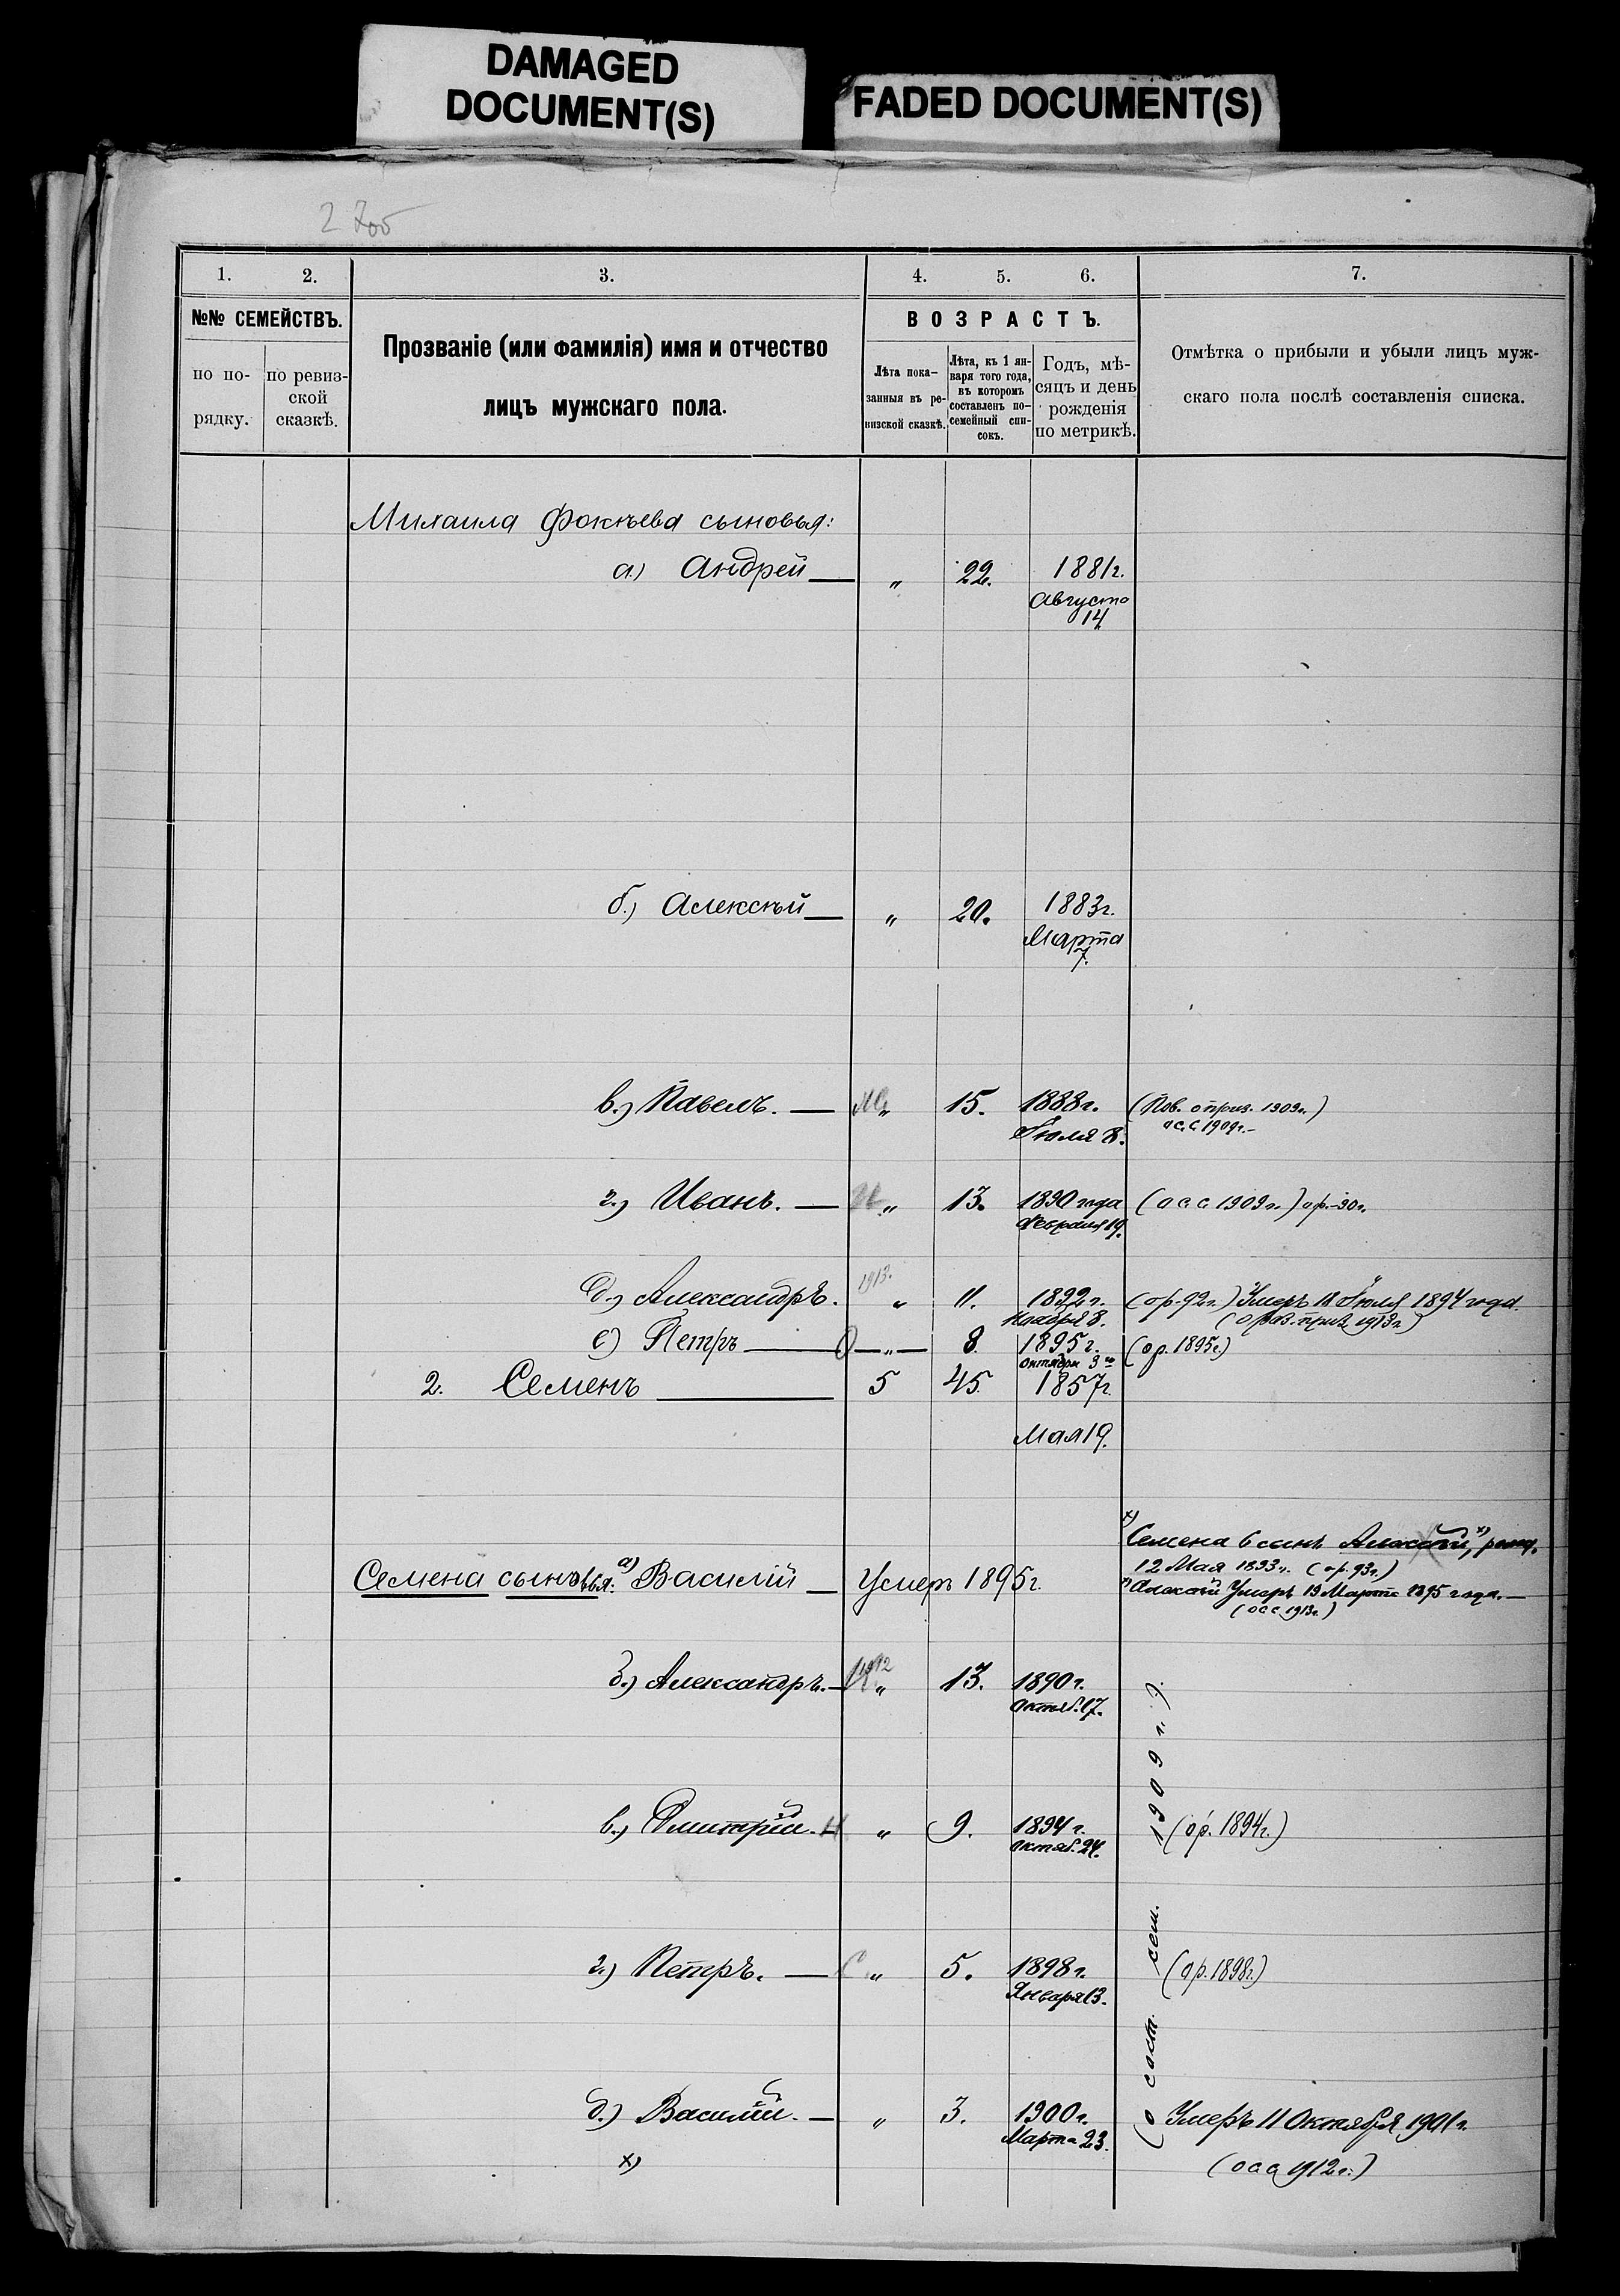 DAMAGED
DOCUMENT(S)
FADED DOCUMENT(S)
1. 2. 3. 4. 5. 6. 7.
№№ СЕМЕЙСТВЪ.
по по-
рядку.
по ревиз-
ской
сказкѣ.
Прозваніе (или фамилія) имя и отчество
лицъ мужскаго пола.
ВОЗРАСТЪ.
Лѣта пока-
занныя въ ре-
визской сказкѣ.
Лѣта, къ 1 ян-
варя того года,
въ которомъ
составленъ по-
семейный спи-
сокъ.
Годъ, мѣ-
сяцъ и день
рожденія
по метрикѣ.
Отмѣтка о прибыли и убыли лицъ муж-
скаго пола послѣ составленія списка.
Михаила Фокѣева сыновья:
а.) Андрей — „ 22. 1881г.
Августа
14
б.) Алексѣй — „ 20. 1883г.
Марта
7.
в.) Павелъ. — „ 15. 1888г. (Пов. о приз. 1909г.)
Іюля 8. осс 1909г.–
г.) Иванъ. — „ 13. 1890 года (осс 1909г.) ор.–90г.
Февраля 19.
1913.
д.) Александръ. „ 11. 1892г. (ор. 92г.) Умеръ 18 Іюля 1894 года.
Ноября 8. (о раз. приз. 1913г.)
е) Петръ — „ — 8. 1895г. (ор. 1895г.)
октября 3го
2. Семенъ — 5 45. 1857г.
Мая 19.
х) Семена 6 сынъ Алексѣй, х) рожд.
12 Мая 1893г. (ор. 93г.)
Семена сыновья: а) Василій — Умеръ 1895г.
х) Алексѣй Умеръ 19 Марта 1895 года. —
(осс 1913г.)
б.) Александръ. — 1912 „ 13. 1890г.
Октяб. 17.
в.) Дмитрій. — „ 9. 1894г. (ор. 1894г.)
Октяб. 24.
г.) Петръ. — „ 5. 1898г. (ор. 1898г.)
Января 13.
д.) Василій. — „ 3. 1900г. Умеръ 11 Октября 1901г.
Марта 23.
х) (осс 1912г.)
(о сост. сем. 1909г.).